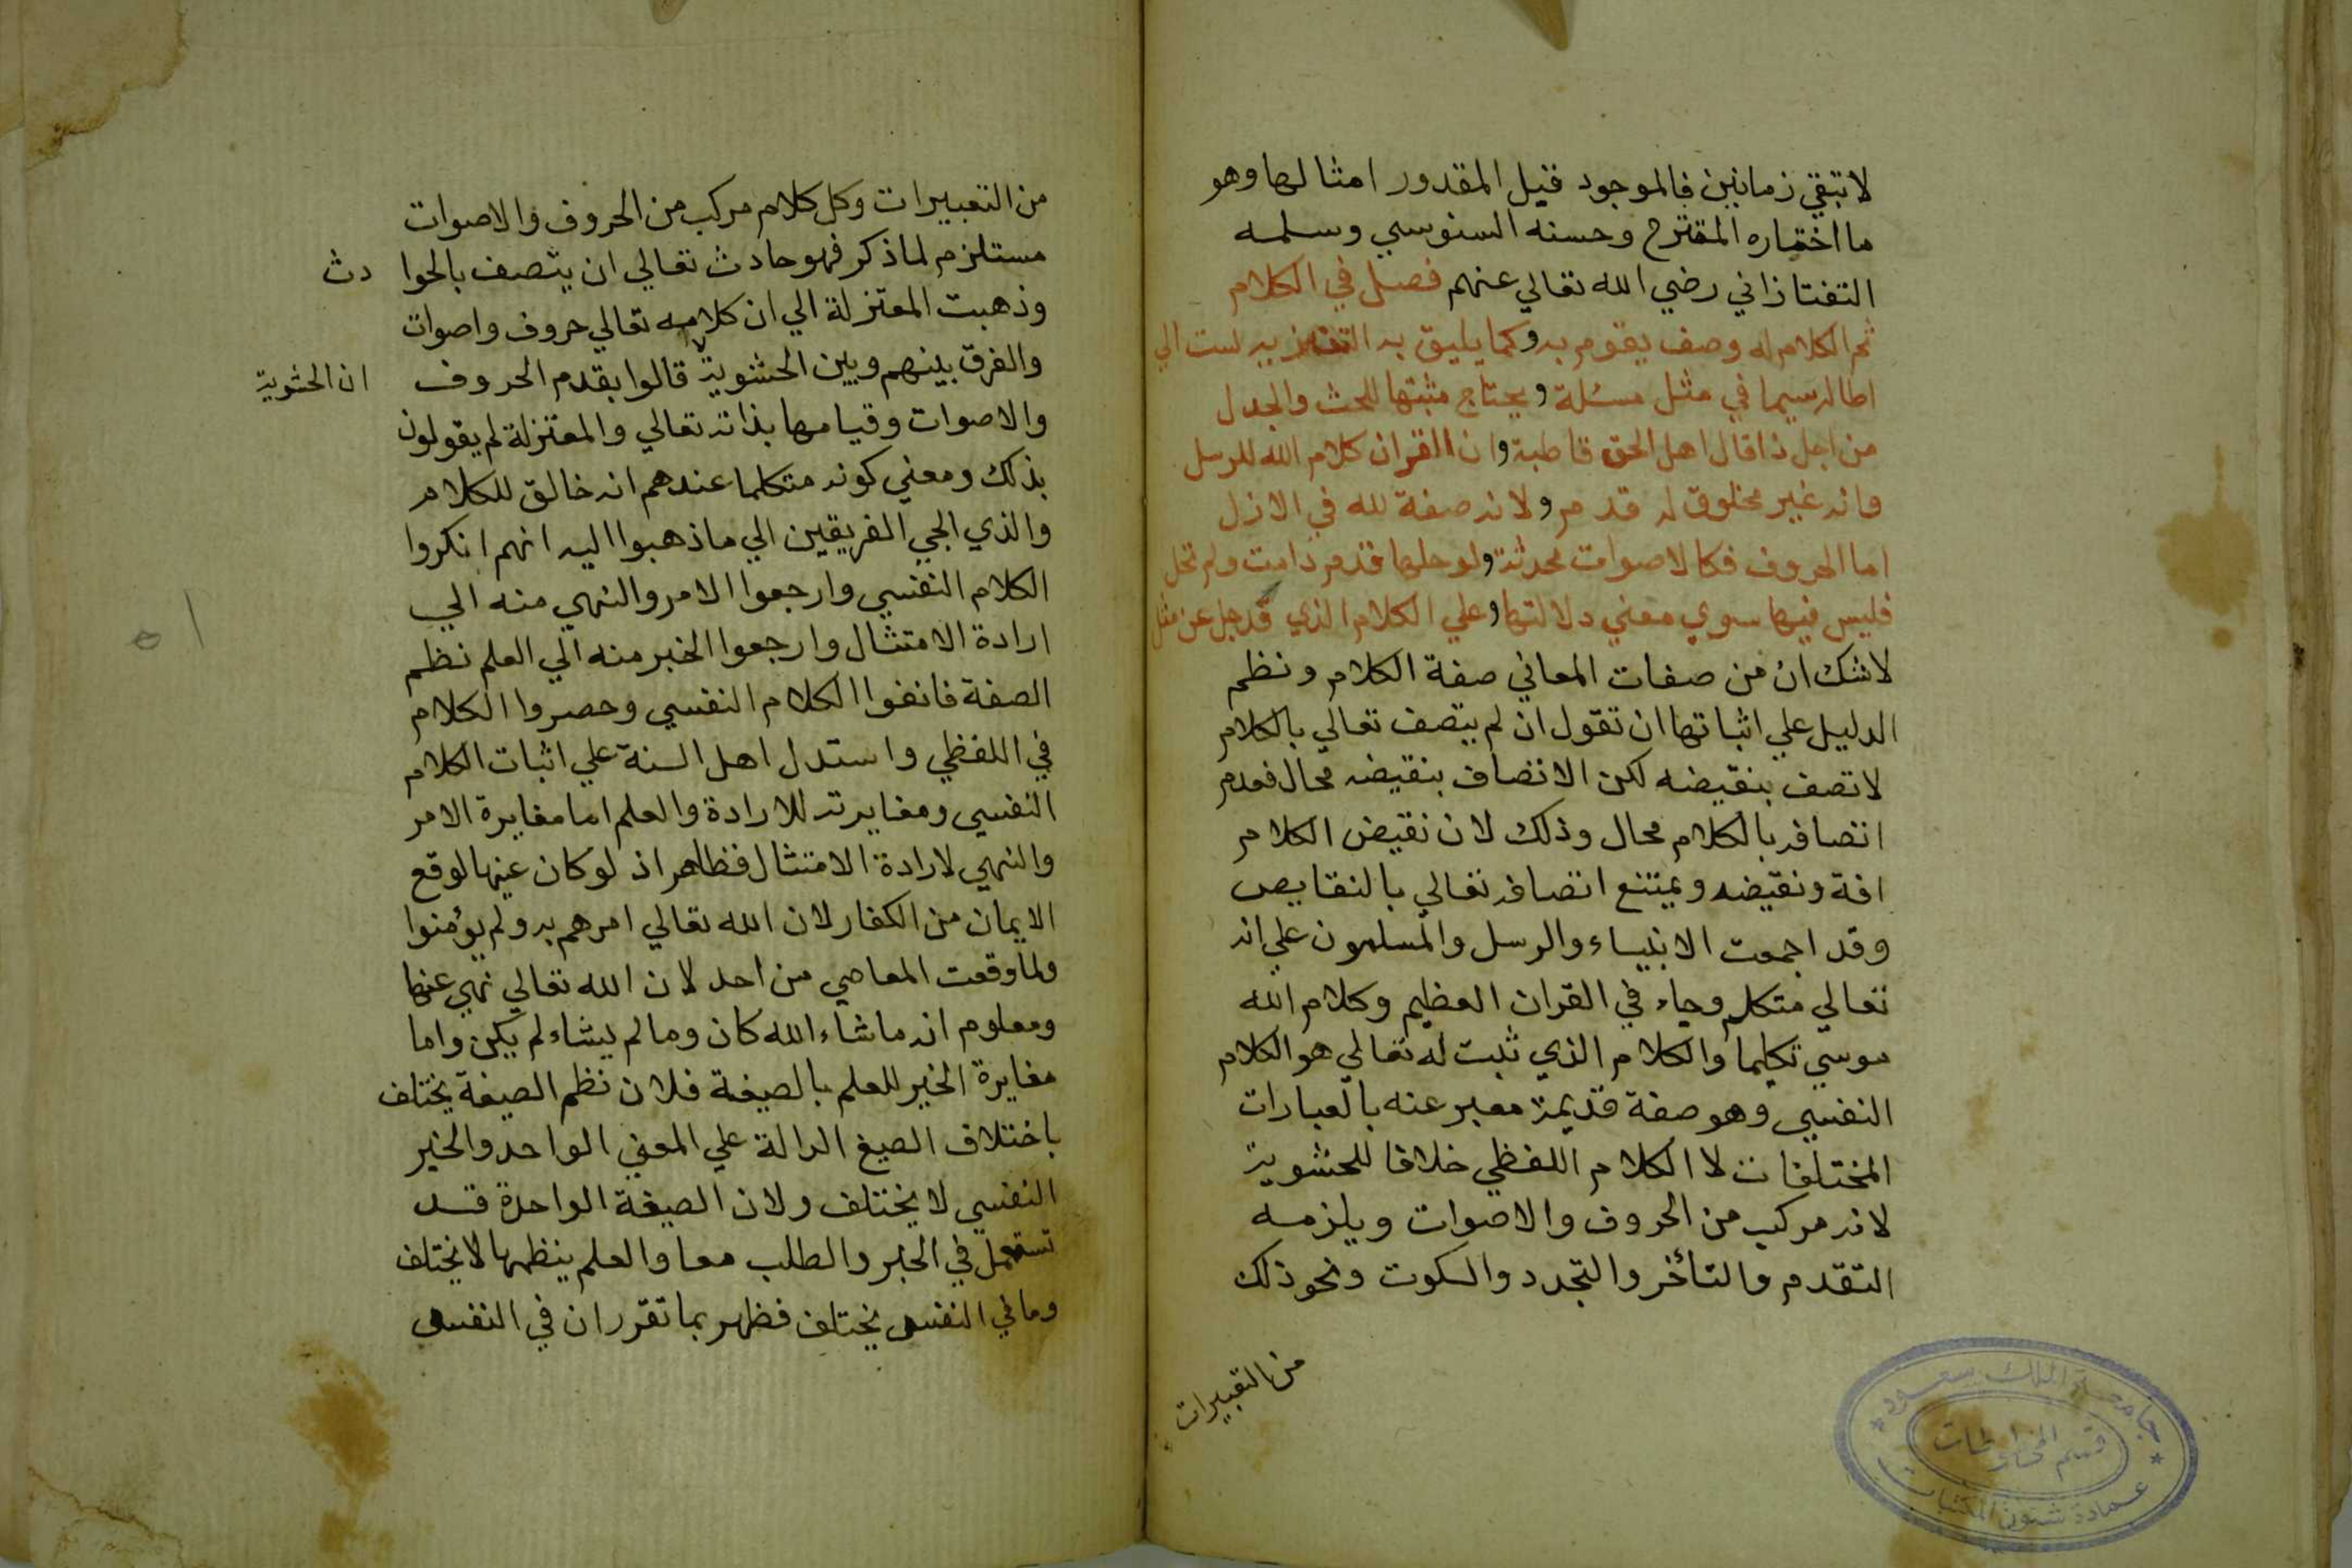 لا تبقي زمانين فالموجود قيل المقدور امثالها وهو
ما اختاره المقترح وحسنه السنوسي وسلمه
التفتازاني رضي الله تعالي عنهم فصل في الكلام
ثم الكلام له وصف يقوم به و كما يليق به لست الي
اطاله سيما في مثل مسئلة و يحتاج مثبتها للبحث والجدل
من اجل ذا قال اهل الحق قاطبة و ان القران كلام الله للرسل
وانه غير مخلوق له قدم و لانه صفة لله في الازل
اما الحروف فكالاصوات محدثة و لو حلها قدم دامت ولم تحل
فليس فيها سوي معني دلالتها و علي الكلام الذي قد جل عن مثل
لا شك ان من صفات المعاني صفة الكلام ونظم
الدليل علي اثباتها ان تقول ان لم يتصف تعالي بالكلام
لاتصف بنقيضه لكن الاتصاف بنقيضه محال فعدم
اتصافه بالكلام محال وذلك لان نقيض الكلام
افة ونقيضه ويمتنع اتصافه تعالي بالنقايص
وقد اجمعت الانبياء والرسل والمسلمون علي انه
تعالي متكلم وجاء في القران العظيم وكلام الله
موسي تكليما والكلام الذي ثبت له تعالي هو الكلام
النفسي وهو صفة قديمة معبر عنه بالعبارات
المختلفات لا الكلام اللفظي خلافا للحشوية
لانه مركب من الحروف والاصوات ويلزمه
التقدم والتأخر والتجدد والسكوت ونحو ذلك
من التعبيرات
جامعة الملك سعود
قسم المخطوطات
عمادة شئون المكتبات
من التعبيرات وكل كلام مركب من الحروف والاصوات
مستلزم لما ذكر فهو حادث تعالي ان يتصف بالحوا دث
وذهبت المعتزلة الي ان كلامه تعالي حروف واصوات
والفرق بينهم وبين الحشوية قالوا بقدم الحروف
ان الحشوية
والاصوات وقيامها بذاته تعالي والمعتزلة لم يقولون
بذلك ومعني كونه متكلما عندهم انه خالق للكلام
والذي الجي الفريقين الي ما ذهبوا اليه انهم انكروا
الكلام النفسي وارجعوا الامر والنهي منه الي
ارادة الامتثال وارجعوا الخبر منه الي العلم نظم
الصفة فانفوا الكلام النفسي وحصروا الكلام
في اللفظي واستدل اهل السنة علي اثبات الكلام
النفسي ومغايرته للارادة والعلم اما مغايرة الامر
والنهي لارادة الامتثال فظاهر اذ لو كان عينها لوقع
الايمان من الكفار لان الله تعالي امرهم به ولم يؤمنوا
ولما وقعت المعاصي من احد لان الله تعالي نهي عنها
ومعلوم انه ما شاء الله كان وما لم يشاء لم يكن واما
مغايرة الخبر للعلم بالصيغة فلان نظم الصيغة يختلف
باختلاف الصيغ الدالة علي المعني الواحد والخبر
النفسي لا يختلف ولان الصيغة الواحدة قد
تستعمل في الخبر والطلب معا والعلم ينظمها لا يختلف
وما في النفس يختلف فظهر بما تقرر ان في النفس